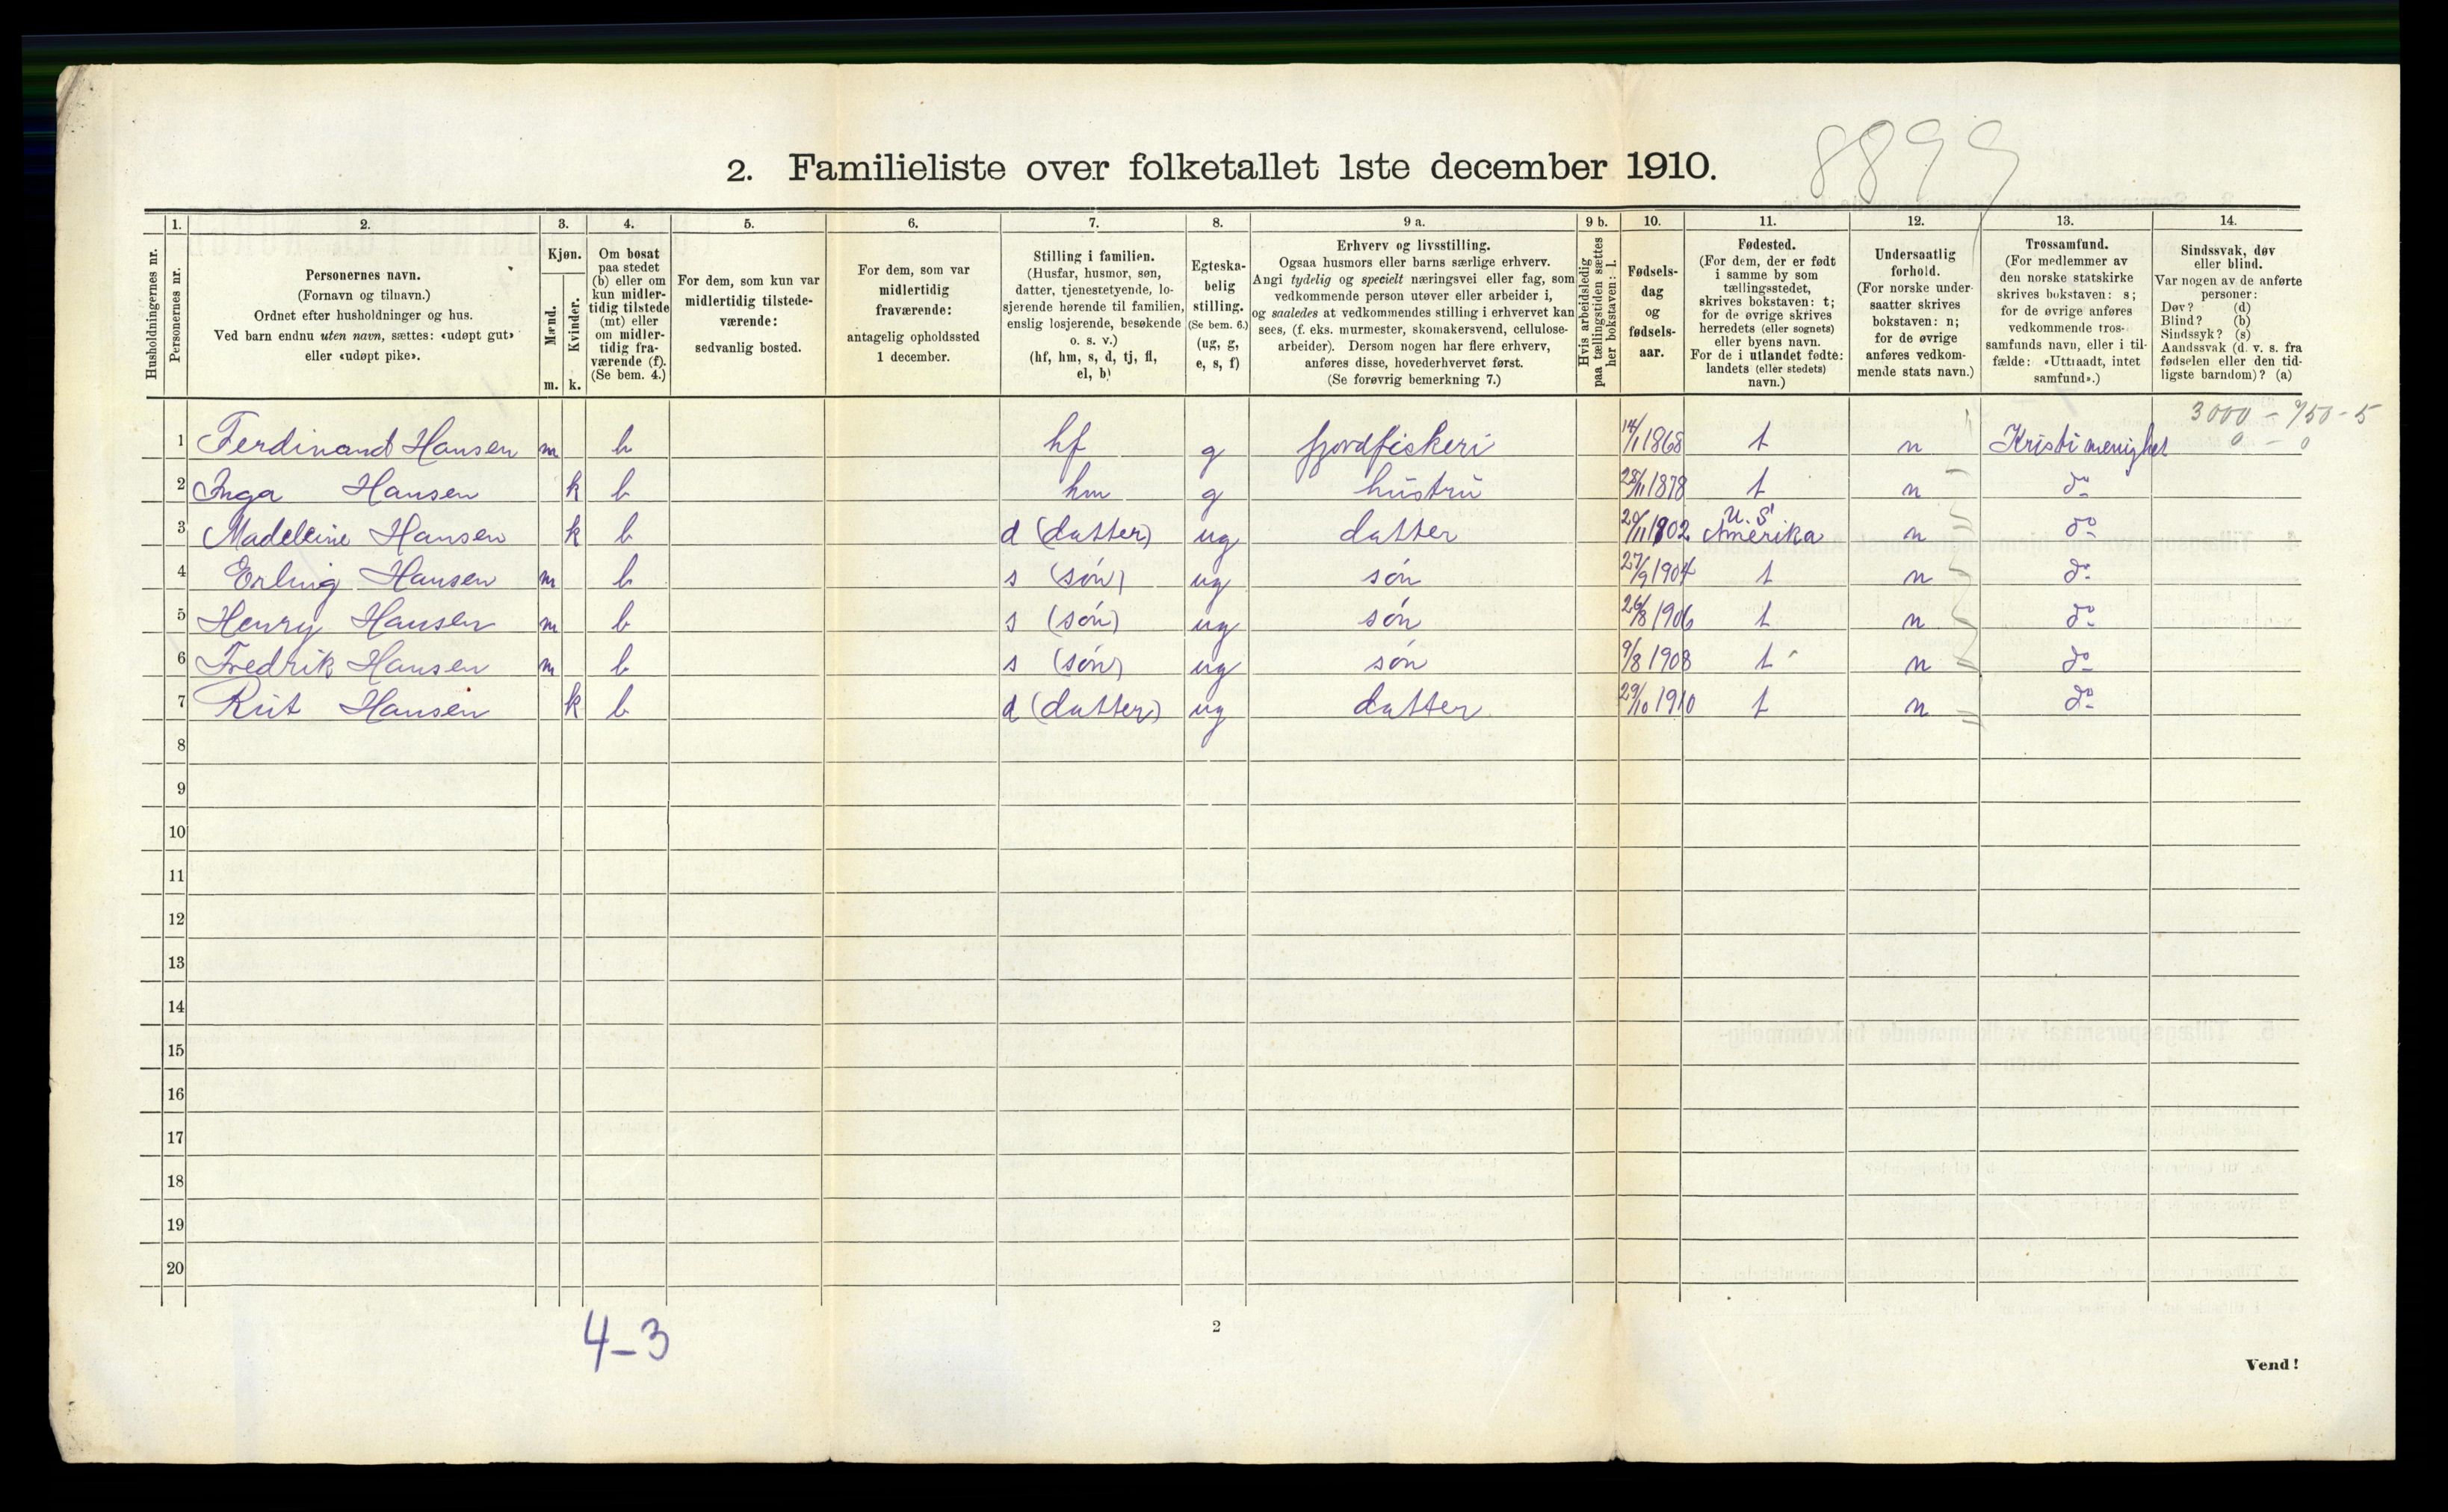 8899
2. Familieliste over folketallet 1ste december 1910.
Husholdningernes nr.
1.
Personernes nr.
2.
Personernes navn.
(Fornavn og tilnavn.)
Ordnet efter husholdninger og hus.
Ved barn endnu uten navn, sættes: «udøpt gut»
eller «udøpt pike».
3.
Kjøn.
Mænd.
Kvinder.
m. k.
4.
Om bosat
paa stedet
(b) eller om
kun midler-
tidig tilstede
(mt) eller
om midler-
tidig fra-
værende (f).
(Se bem. 4.)
5.
For dem, som kun var
midlertidig tilstede-
værende:
sedvanlig bosted.
6.
For dem, som var
midlertidig
fraværende:
antagelig opholdssted
1 december.
7.
Stilling i familien.
(Husfar, husmor, søn,
datter, tjenestetyende, lo-
sjerende hørende til familien,
enslig losjerende, besøkende
o. s. v.)
(hf, hm, s, d, tj, fl,
el, b)
8.
Egteska-
belig
stilling.
(Se bem. 6.)
(ug, g,
e, s, f)
9 a.
Erhverv og livsstilling.
Ogsaa husmors eller barns særlige erhverv.
Angi tydelig og specielt næringsvei eller fag, som
vedkommende person utøver eller arbeider i,
og saaledes at vedkommendes stilling i erhvervet kan
sees, (f. eks. murmester, skomakersvend, cellulose-
arbeider). Dersom nogen har flere erhverv,
anføres disse, hovederhvervet først.
(Se forøvrig bemerkning 7.)
9 b.
Hvis arbeidsledig
paa tællingstiden sættes
her bokstaven: l.
10.
Fødsels-
dag
og
fødsels-
aar.
11.
Fødested.
(For dem, der er født
i samme by som
tællingsstedet,
skrives bokstaven: t;
for de øvrige skrives
herredets (eller sognets)
eller byens navn.
For de i utlandet fødte:
landets (eller stedets)
navn.)
12.
Undersaatlig
forhold.
(For norske under-
saatter skrives
bokstaven: n;
for de øvrige
anføres vedkom-
mende stats navn.)
13.
Trossamfund.
(For medlemmer av
den norske statskirke
skrives bokstaven: s;
for de øvrige anføres
vedkommende tros-
samfunds navn, eller i til-
fælde: «Uttraadt, intet
samfund».)
14.
Sindssvak, døv
eller blind.
Var nogen av de anførte
personer:
Døv? (d)
Blind? (b)
Sindssyk? (s)
Aandssvak (d. v. s. fra
fødselen eller den tid-
ligste barndom)? (a)
3000 - 750 - 5
0 - 0
1 Ferdinand Hansen m b hf g fjordfiskeri 14/1 1868 t n Kristi menighet
2 Inga Hansen k b hm g hustru 28/11 1878 t n do
3 Madeleine Hansen k b d (datter) ug datter 20/11 1902 U. S. Amerika n do
4 Erling Hansen m b s (søn) ug søn 27/9 1904 t n do
5 Henry Hansen m b s (søn) ug søn 26/8 1906 t n do
6 Fredrik Hansen m b s (søn) ug søn 9/8 1908 t n do
7 Rut Hansen k b d (datter) ug datter 29/10 1910 t n do
8
9
10
11
12
13
14
15
16
17
18
19
20
4-3
2
Vend!